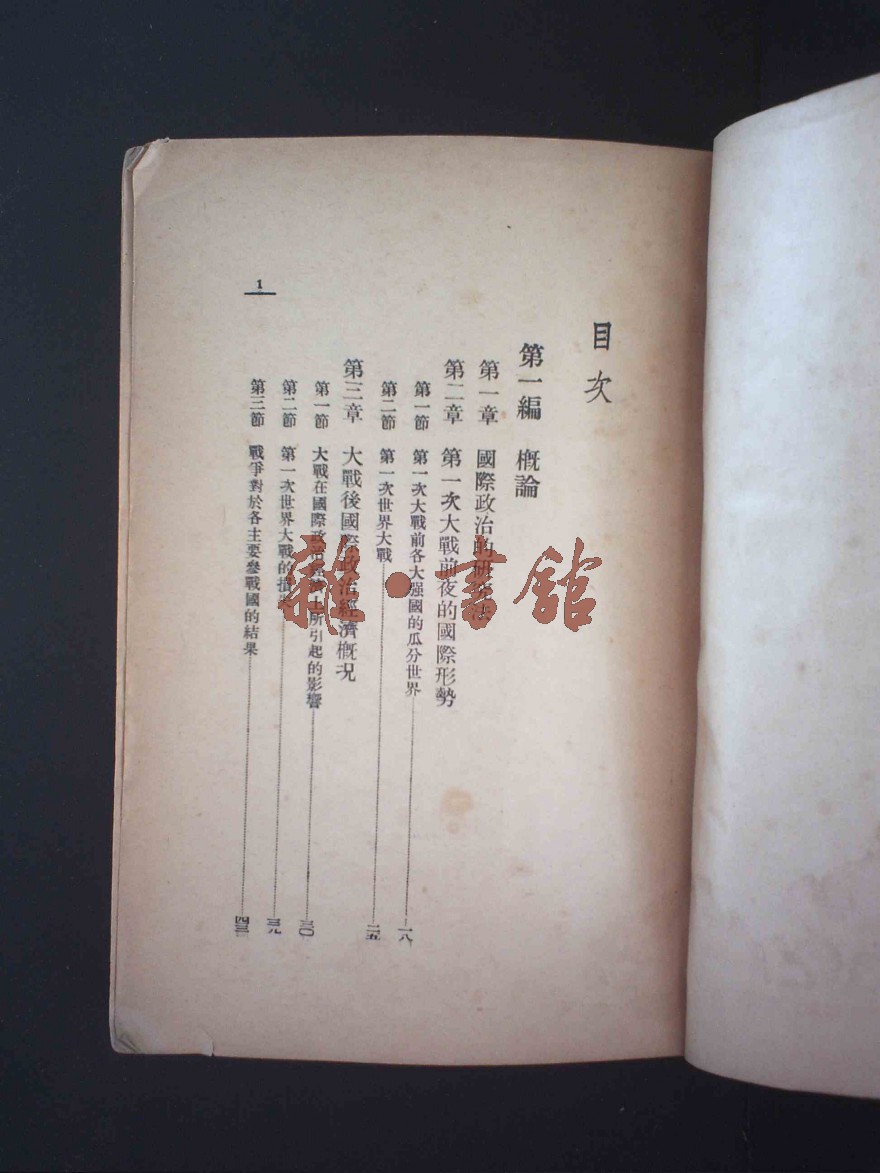 目次
第一編 概論
第一章 國際政治的研究法
第二章 第一次大戰前夜的國際形勢
第一節 第一次大戰前各大强國的瓜分世界 一八
第二節 第一次世界大戰 二五
第三章 大戰後國際政治經濟概况
第一節 大戰在國際政治經濟上所引起的影響 三〇
第二節 第一次世界大戰的損失 三九
第三節 戰爭對於各主要參戰國的結果 四三
1
雜·書館